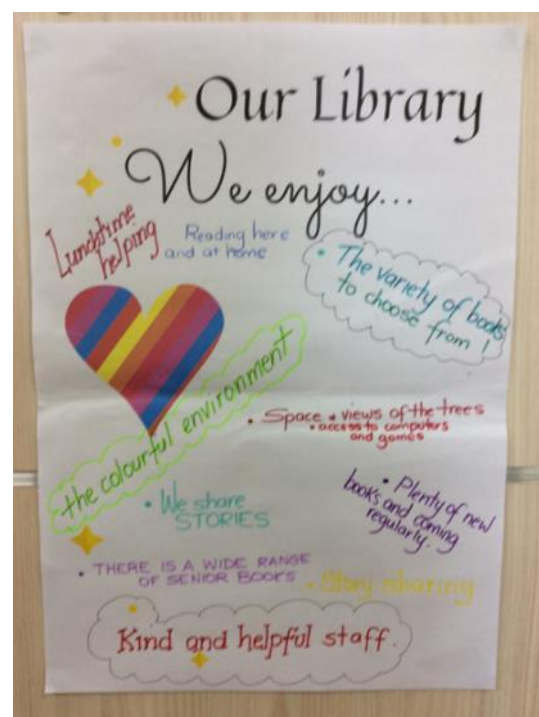 Our Library
We enjoy...
Lunchtime
helping
Reading here
and at home
• The variety of books
to choose from!
the colourful environment
• Space + views of the trees
• access to computers
and games
• We share
STORIES
• Plenty of new
books and coming
regularly.
• THERE IS A WIDE RANGE
OF SENIOR BOOKS
• Story sharing
Kind and helpful staff.